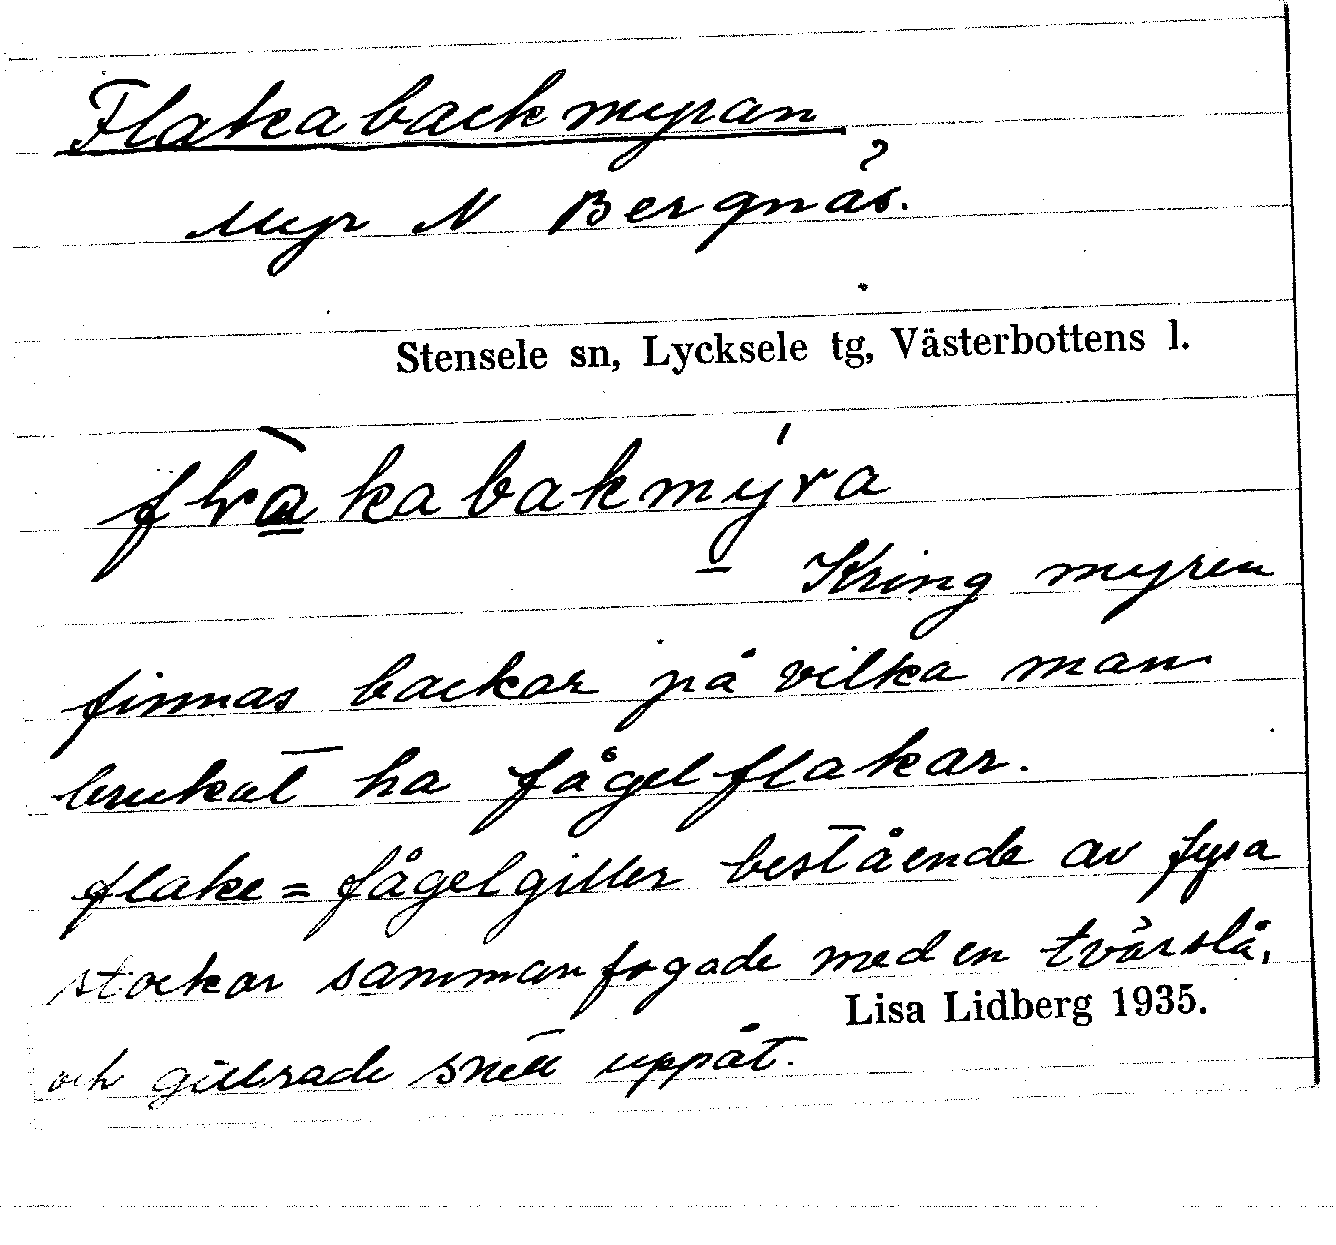 Flakabackmyran
Myr N Bergnäs.
Stensele sn, Lycksele tg, Västerbottens l.
flràkabakmýra
Kring myren
finnas backar på vilka man
brukat ha fågelflakar.
flake = fågelgiller bestående av fyra
stockar sammanfogade med en tvärslå,
Lisa Lidberg 1935.
och gillrade snett uppåt.